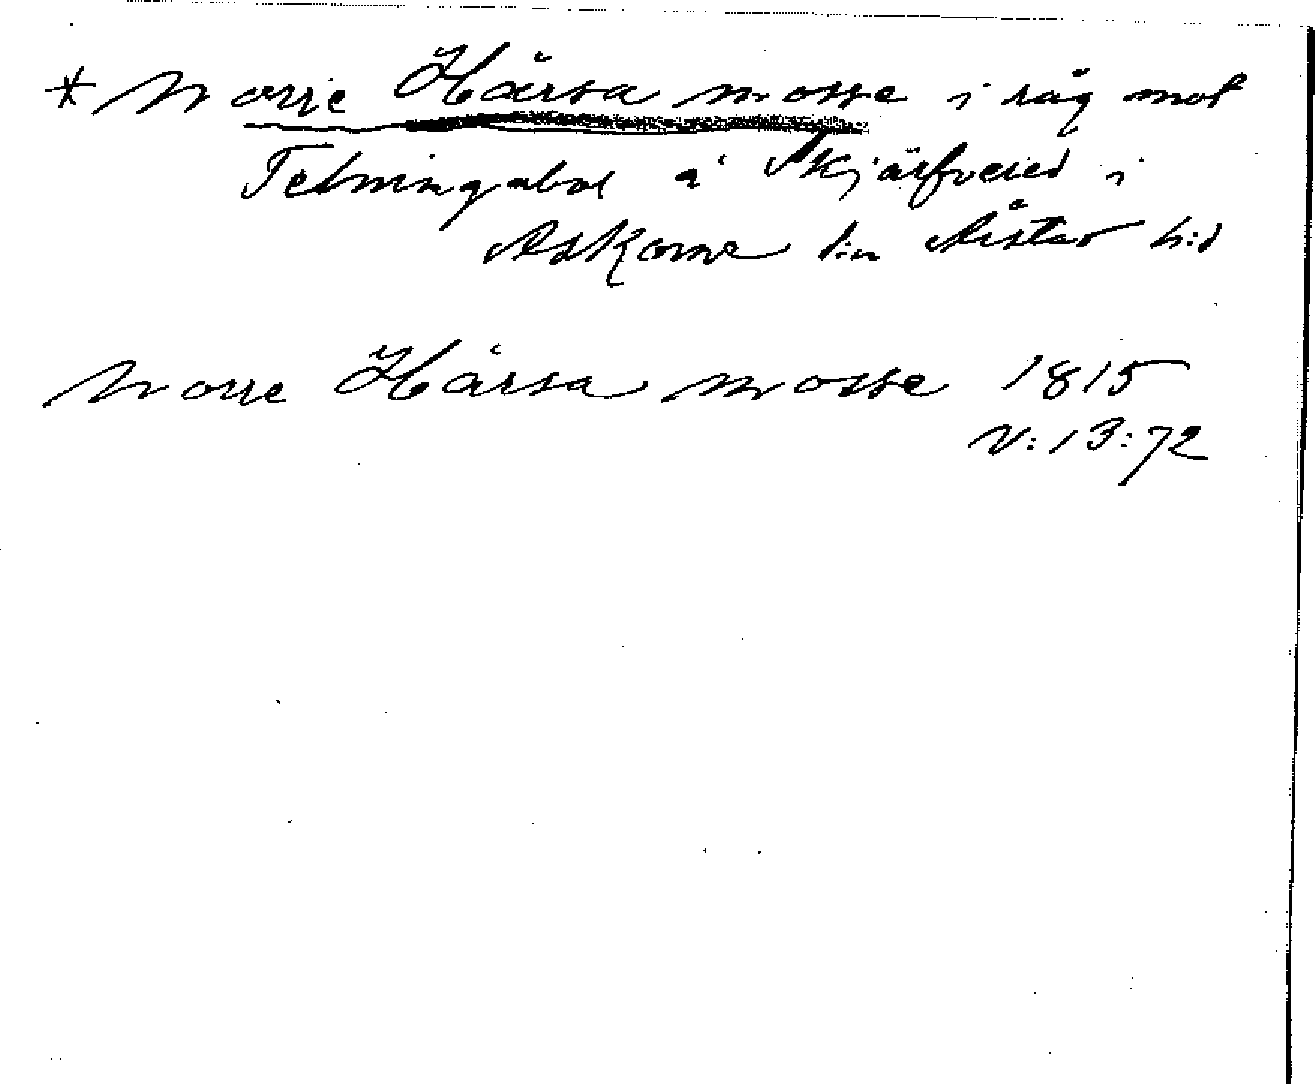 * Norre Hårsa mosse i råg mot
Tetningabol å Skjärfvered i
Askome s:n Årstad h:d
Norre Hårsa mosse 1815
V:13:72